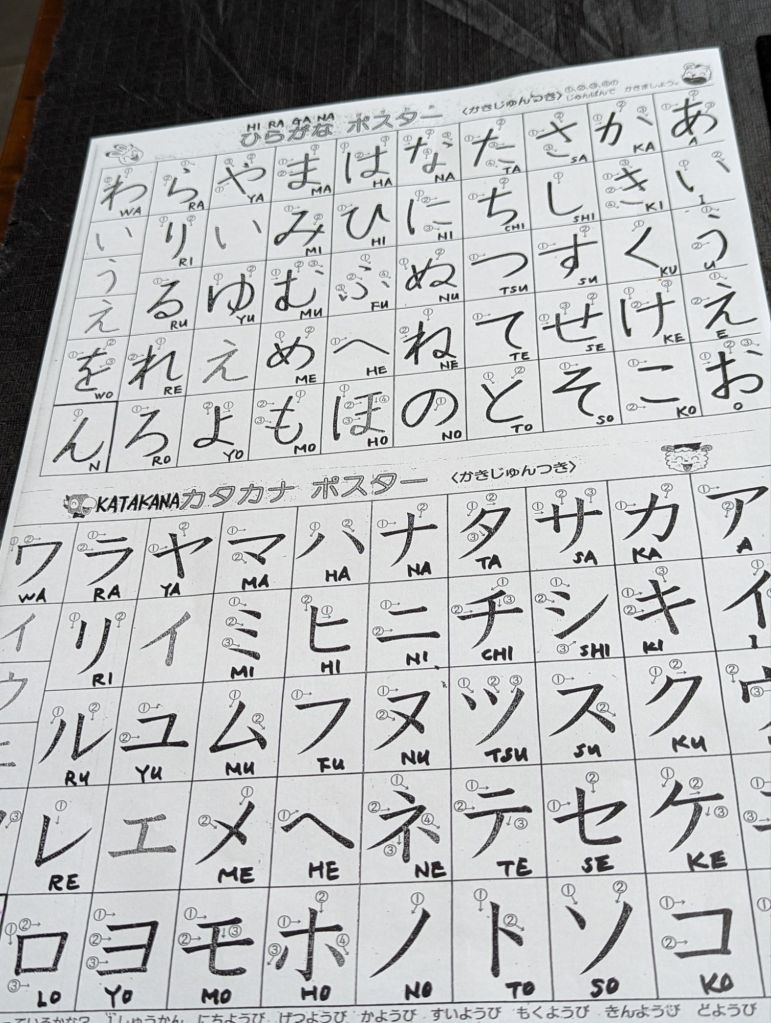 HI RA GA NA
ひらがな ポスター 〈かきじゅんつき〉 ①、②、③、④の じゅんばんで かきましょう。
わ ら や ま は な た さ か あ
WA RA YA MA HA NA TA SA KA A
い り い み ひ に ち し き い
RI MI HI NI CHI SHI KI I
う
る ゆ む ふ ぬ つ す く う
RU YU MU FU NU TSU SU KU U
え
を れ え め へ ね て せ け え
WO RE ME HE NE TE SE KE E
ん ろ よ も ほ の と そ こ お
N RO YO MO HO NO TO SO KO O
KATAKANA カタカナ ポスター 〈かきじゅんつき〉
ワ ラ ヤ マ ハ ナ タ サ カ ア
WA RA YA MA HA NA TA SA KA A
イ リ イ ミ ヒ ニ チ シ キ イ
RI MI HI NI CHI SHI KI I
ウ
ル ユ ム フ ヌ ツ ス ク ウ
RU YU MU FU NU TSU SU KU
レ エ メ ヘ ネ テ セ ケ
RE ME HE NE TE SE KE
ロ ヨ モ ホ ノ ト ソ コ
LO YO MO HO NO TO SO KO
っているかな? 1しゅうかん にちようび げつようび かようび すいようび もくようび きんようび どようび